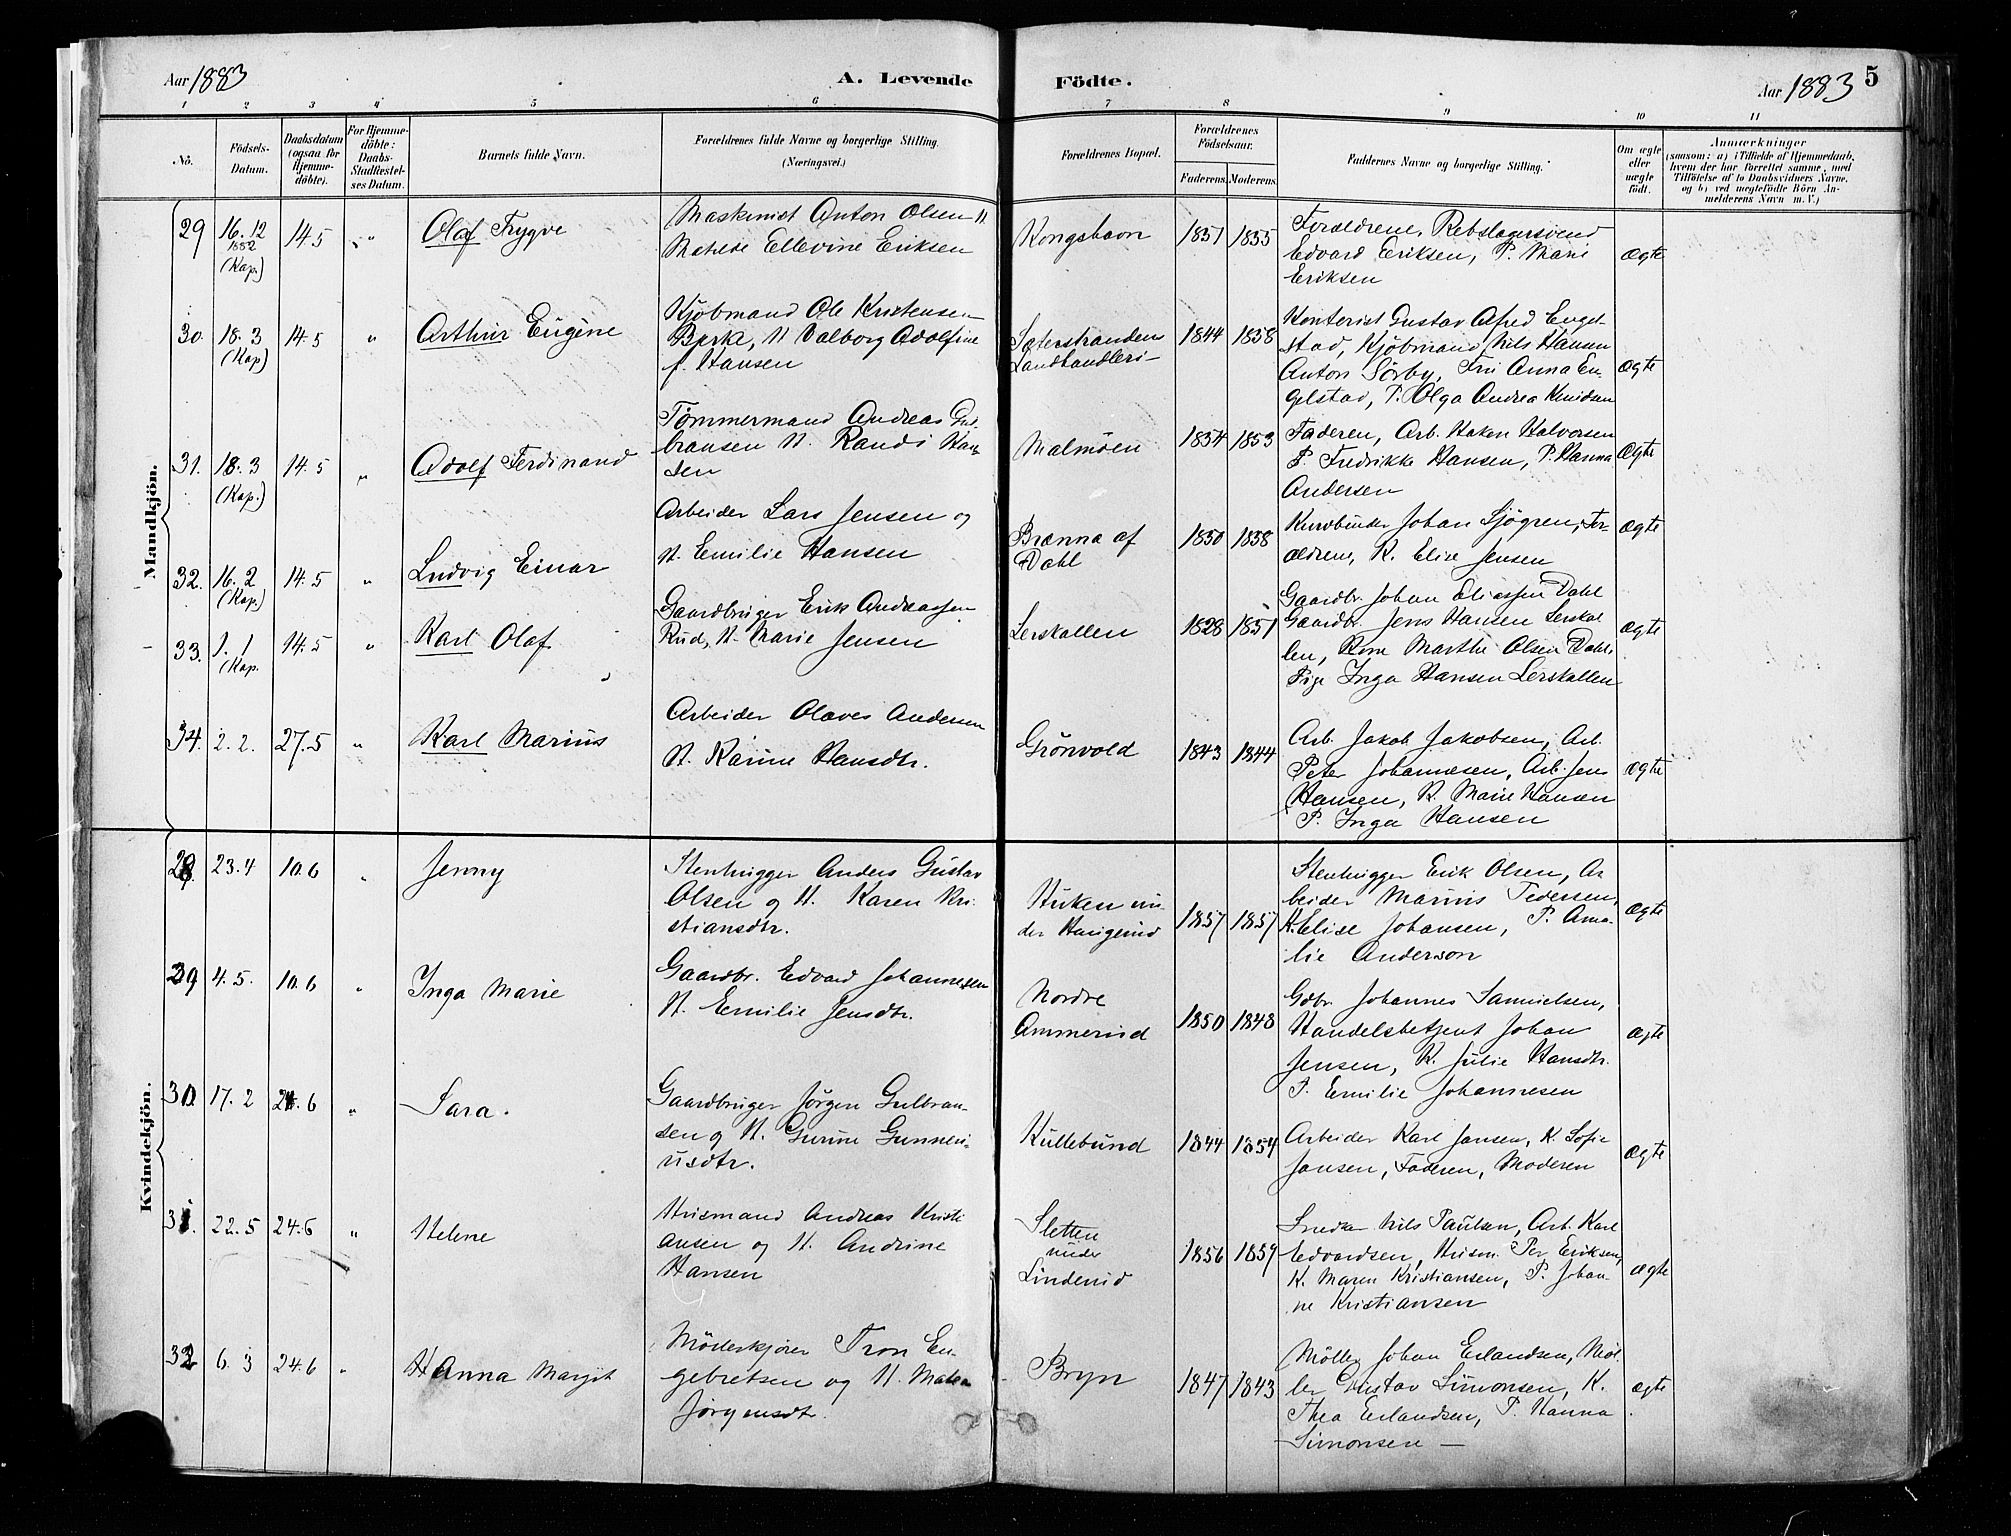 Aar 1883
A. Levende
Födte.
Aar 1883
5
1 2 3 4 5 6 7 8 9 10 11
No.
Födsels-
Datum.
Daabsdatum
(ogsaa for
Hjemme-
döbte).
For Hjemme-
döbte:
Daabs-
Stadfestel-
ses Datum.
Barnets fulde Navn.
Forældrenes fulde Navne og borgerlige Stilling.
(Næringsvei.)
Forældrenes Bopæl.
Forældrenes
Födselsaar.
Faderens. Moderens.
Faddernes Navne og borgerlige Stilling.
Om ægte
eller
uægte
födt.
Anmærkninger
(saasom: a) i Tilfælde af Hjemmedaab,
hvem der har forrettet samme, med
Tilföielse af to Daabsvidners Navne,
og b) ved uægtefödte Börn An-
melderens Navn m. V.)
Mandkjön.
29
16.12
1882
(Kap.)
14.5
"
Olaf Trygve
Maskinist Anton Olsen H
Matilde Ellevine Eriksen
Kongshavn
1851
1855
Forældrene, Rebslagersvend
Edvard Eriksen, P. Marie
Eriksen
Ægte
30.
18.3
(Kap)
14.5
"
Arthur Eugene
Kjöbmand Ole Kristensen
Berke, H Valborg Adolfine
f. Hansen
Sæterstranden
Landhandleri
1844
1858
Kontorist Gustav Alfred Engel-
stad, Kjöbmand Nils Hansen
Anton Sörby, Fru Anna En-
gelstad, P. Olga Andrea Knudsen
Ægte
31.
18.3
(Kap.)
14.5
"
Adolf Ferdinand
Tømmermand Andreas Gul
bransen H. Randi Han
sen
Malmøen
1854
1853
Faderen, Arb. Haken Halvorsen
P. Fredrikke Hansen, P. Hanna
Andersen
Ægte
32.
16.2
(Kap)
14.5
"
Ludvig Einar
Arbeider Lars Jensen og
H. Emilie Hansen
Brænna af
Dahl
1850
1858
Kurvbinder Johan Sjögren, For-
ældrene, K. Elise Jensen
Ægte
33.
1.1
(Kap.
14.5
"
Karl Olaf
Gaardbruger Erik Andreassen
Rud, H. Marie Jensen
Lerskallen
1828
1851
Gaardbr. Johan Eliassen Dahl
Gaardbr. Jens Hansen Lerskal
len, Kone Marthe Olsen Dahl,
Pige Inga Hansen Lerskallen
Ægte
34.
2.2.
27.5
"
Karl Marius
Arbeider Olaves Andersen
H. Karine Hansdtr.
Grönvold
1843
1844
Arb. Jakob Jakobsen, Arb.
Peter Johannesen, Arb. Jens
Hansen, K. Marie Hansen
P. Inga Hansen
Ægte
Kvindekjön.
28.
23.4
10.6
"
Jenny
Stenhugger Anders Gustav
Olsen og H. Karen Kri-
stiansdtr.
Huken un-
der Haugerud
1857
1857
Stenhugger Erik Olsen, Ar
beider Marius Pedersen,
K. Elise Johansen, P. Ama-
lie Anderson
Ægte
29
4.5.
10.6
"
Inga Marie
Gaardbr. Edvard Johannesen
H. Emilie Jensdtr.
Nordre
Ammerud
1850
1848
Gdbr. Johannes Samuelsen,
Handelsbetjent Johan
Jensen, K. Julie Hansdtr.
P. Emilie Johannesen
Ægte
30.
17.2
24.6
"
Sara.
Gaardbruger Jörgen Gulbran-
sen og H. Gurine Gunneri-
usdtr.
Kullebund
1844
1854
Arbeider Karl Jansen, K. Sofie
Jansen, Faderen, Moderen
Ægte
31.
22.5
24.6
"
Helene
Husmand Andreas Kristi
ansen og H. Andrine
Hansen
Sletten
under
Linderud
1856
1859
Smed Nils Paulsen, Arb. Karl
Edvardsen, Husm. Per Eriksen,
K. Maren Kristiansen, P. Johan-
ne Kristiansen
Ægte
32
6.3
24.6
"
Hanna Margit
Möllerkjörer Tron En-
gebretsen og H. Matea
Jörgensdtr.
Bryn
1847
1843
Möller Johan Erlandsen, Möl-
ler Gustav Simonsen, K.
Thea Erlandsen, P. Hanna
Simonsen
Ægte